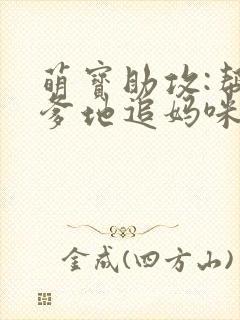 萌寳助攻:幫
爹地追妈咪
金成(四方山)